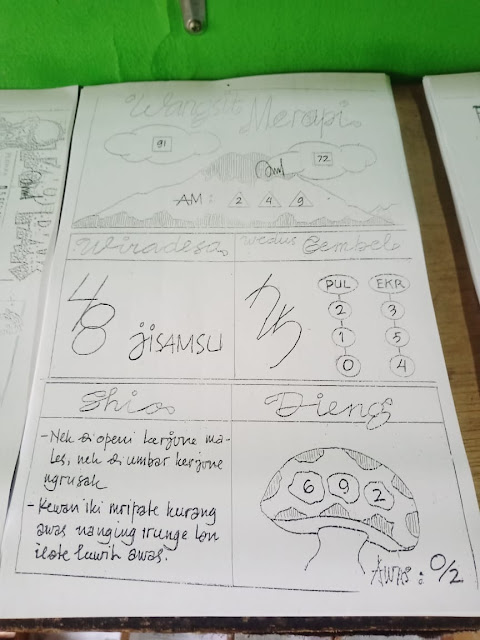 Wangsit Merapi
91
72
AM: 2 4 9
Wiradesa
wedus Gembel
48
JISAMSU
PUL
2
1
0
EKR
3
5
4
Shio
- Nek di openi kerjone ma-
les, nek di umbar kerjone
ngrusak
- Kewan iki mripate kurang
awas nanging irunge lan
ilate luwih awas.
Dieng
6 9 2
AWAS: 0/2